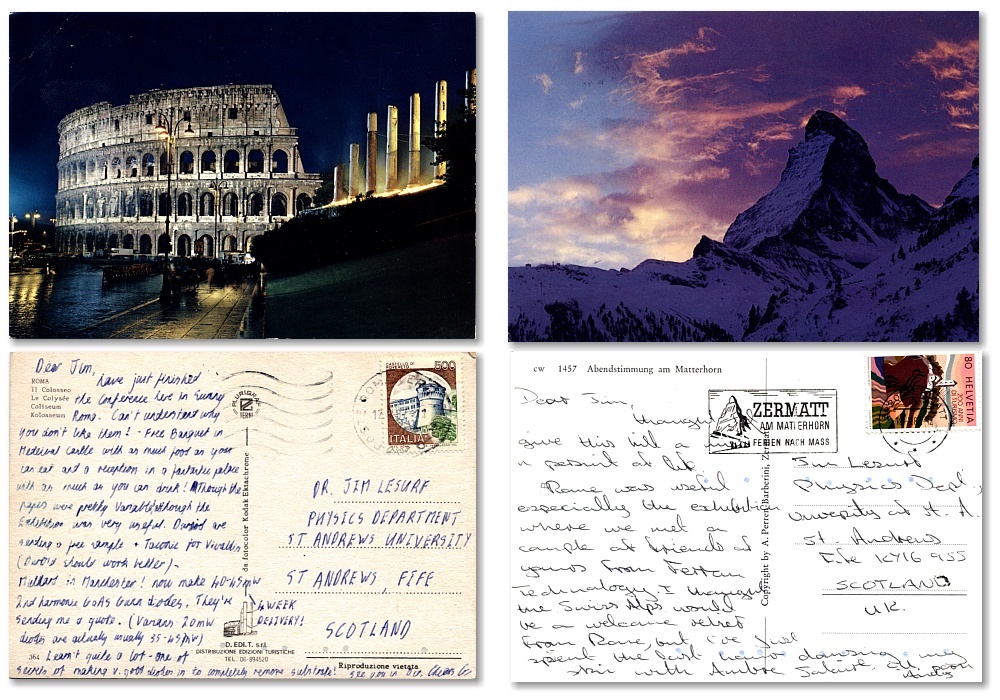 Dear Jim,
have just finished
the conference here in sunny
Roma. Can't understand why
you don't like them! - Free Banquet in
Medieval Castle with as much food as you
can eat and a reception in a fantastic palace
with as much as you can drink! Although the
papers were pretty variable, although the
Exhibition was very useful. are
sending a free sample + Taconic for Vivaldi
( should work better) -
in Manchester! now make 40-45mW
2nd harmonic GaAs Gunn diodes. They're
sending me a quote. (Varians 20mW
diodes are actually usually 35-45mW)
Learnt quite a lot - one of
secrets of making v. good diodes is to completely remove substrate! See you in
4 WEEK
DELIVERY!
ROMA
Il Colosseo
Le Colysée
Coliseum
Kolosseum
PLURIGRAF
TERNI
da fotocolor Kodak Ektachrome
364
D. EDI.T. s.r.l.
DISTRIBUZIONE EDIZIONI TURISTICHE
TEL. 06-894520
Riproduzione vietata
500
ITALIA
DR. JIM LESURF
PHYSICS DEPARTMENT
ST ANDREWS UNIVERSITY
ST ANDREWS, FIFE
SCOTLAND
cw 1457 Abendstimmung am Matterhorn
ZERMATT
AM MATTERHORN
FERIEN NACH MASS
80 HELVETIA
Copyright by A. Perren-Barberini, Zermatt
Dear Jim
Thought I'd
give this hill a miss
at present at least.
Rome was useful
especially the exhibition
where we met a
couple of friends of
yours from Farran
Technology. I thought
the Swiss Alps would
be a welcome relief
from Rome, but I've just
spent the last hour dancing my
with
Andy
Jim Lesurf
Physics Dept.,
University of St. A.
St. Andrews
Fife KY16 9SS
SCOTLAND
U.K.